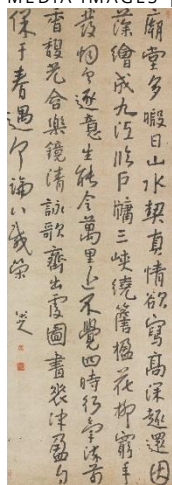 MEDIA IMAGES
廟堂多暇日山水契真情欲寫高深趣還因
藻繪成九江臨戶牖三峽繞簷楹花柳窮年
發煙雲逐意生能令萬里近不覺四時行氣染荀
香馥光含樂鏡清詠歌齊出處圖書表沖盈自
保千春遇寧論八載榮
八大